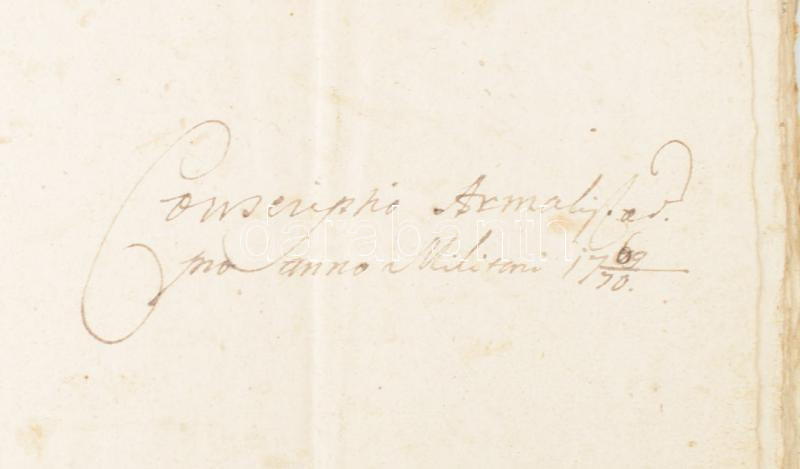 Conscriptio Armalist.
pro Anno Militari 1769/70.
darabanth